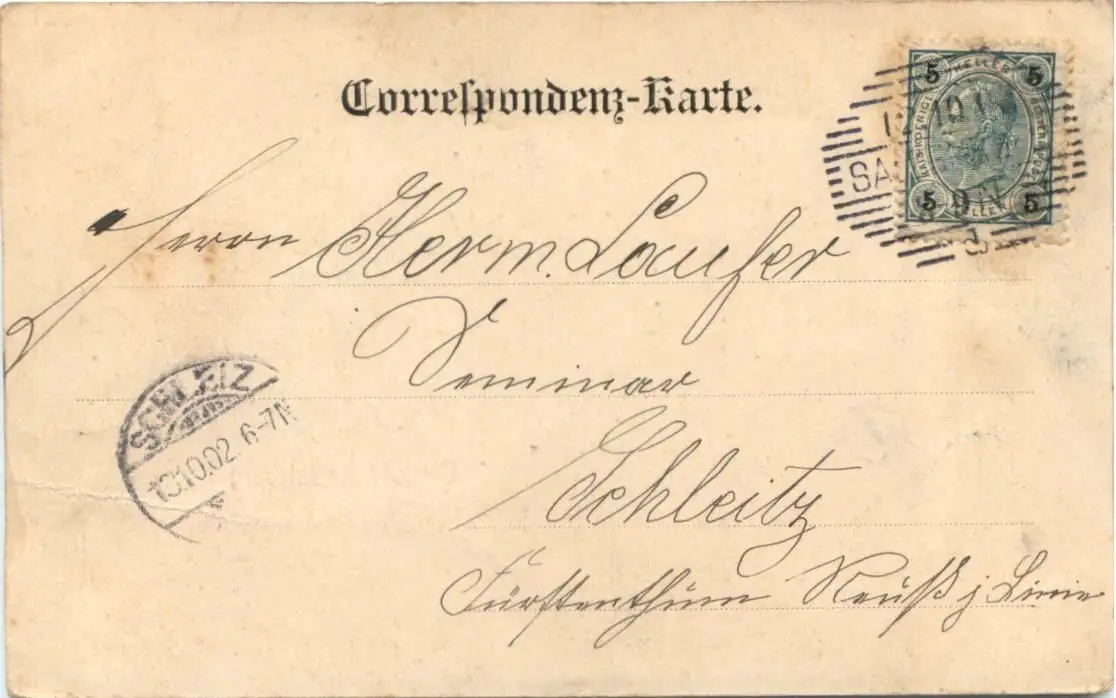 Correspondenz-Karte.
5 HELLER 5
5 HELLER 5
12 10
SA
9 IN
Herrn Herm. Laufer
Seminar
Schleitz
Fürstenthum Reuß j Linie
SCHLEIZ
13.10.02 6-7N